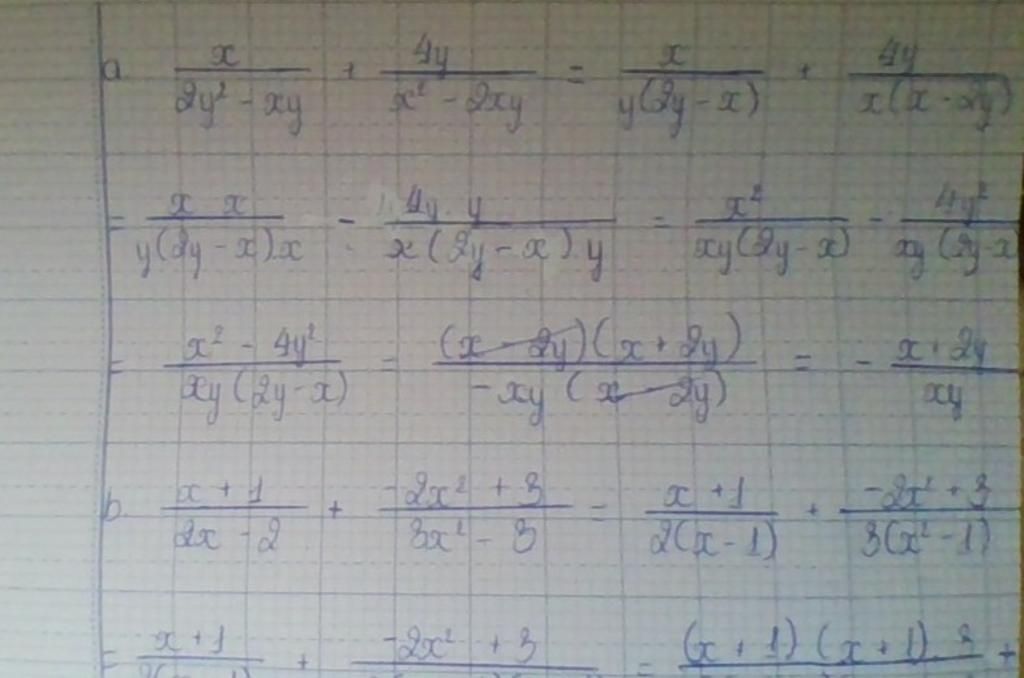 a. x/(2y² - xy) + 4y/(x² - 2xy) = x/(y(2y - x)) + 4y/(x(x - 2y))
= (x . x)/(y(2y - x).x) - (4y . y)/(x(2y - x).y) = x²/(xy(2y - x)) - 4y²/(xy(2y - x
= (x² - 4y²)/(xy(2y - x)) = ((x - 2y)(x + 2y))/(-xy(x - 2y)) = - (x + 2y)/(xy)
b. (x + 1)/(2x - 2) + (-2x² + 3)/(3x² - 3) = (x + 1)/(2(x - 1)) + (-2x² + 3)/(3(x² - 1))
= (x + 1)/(2(x - 1)) + (-2x² + 3)/ = (x + 1)(x + 1).3/ +